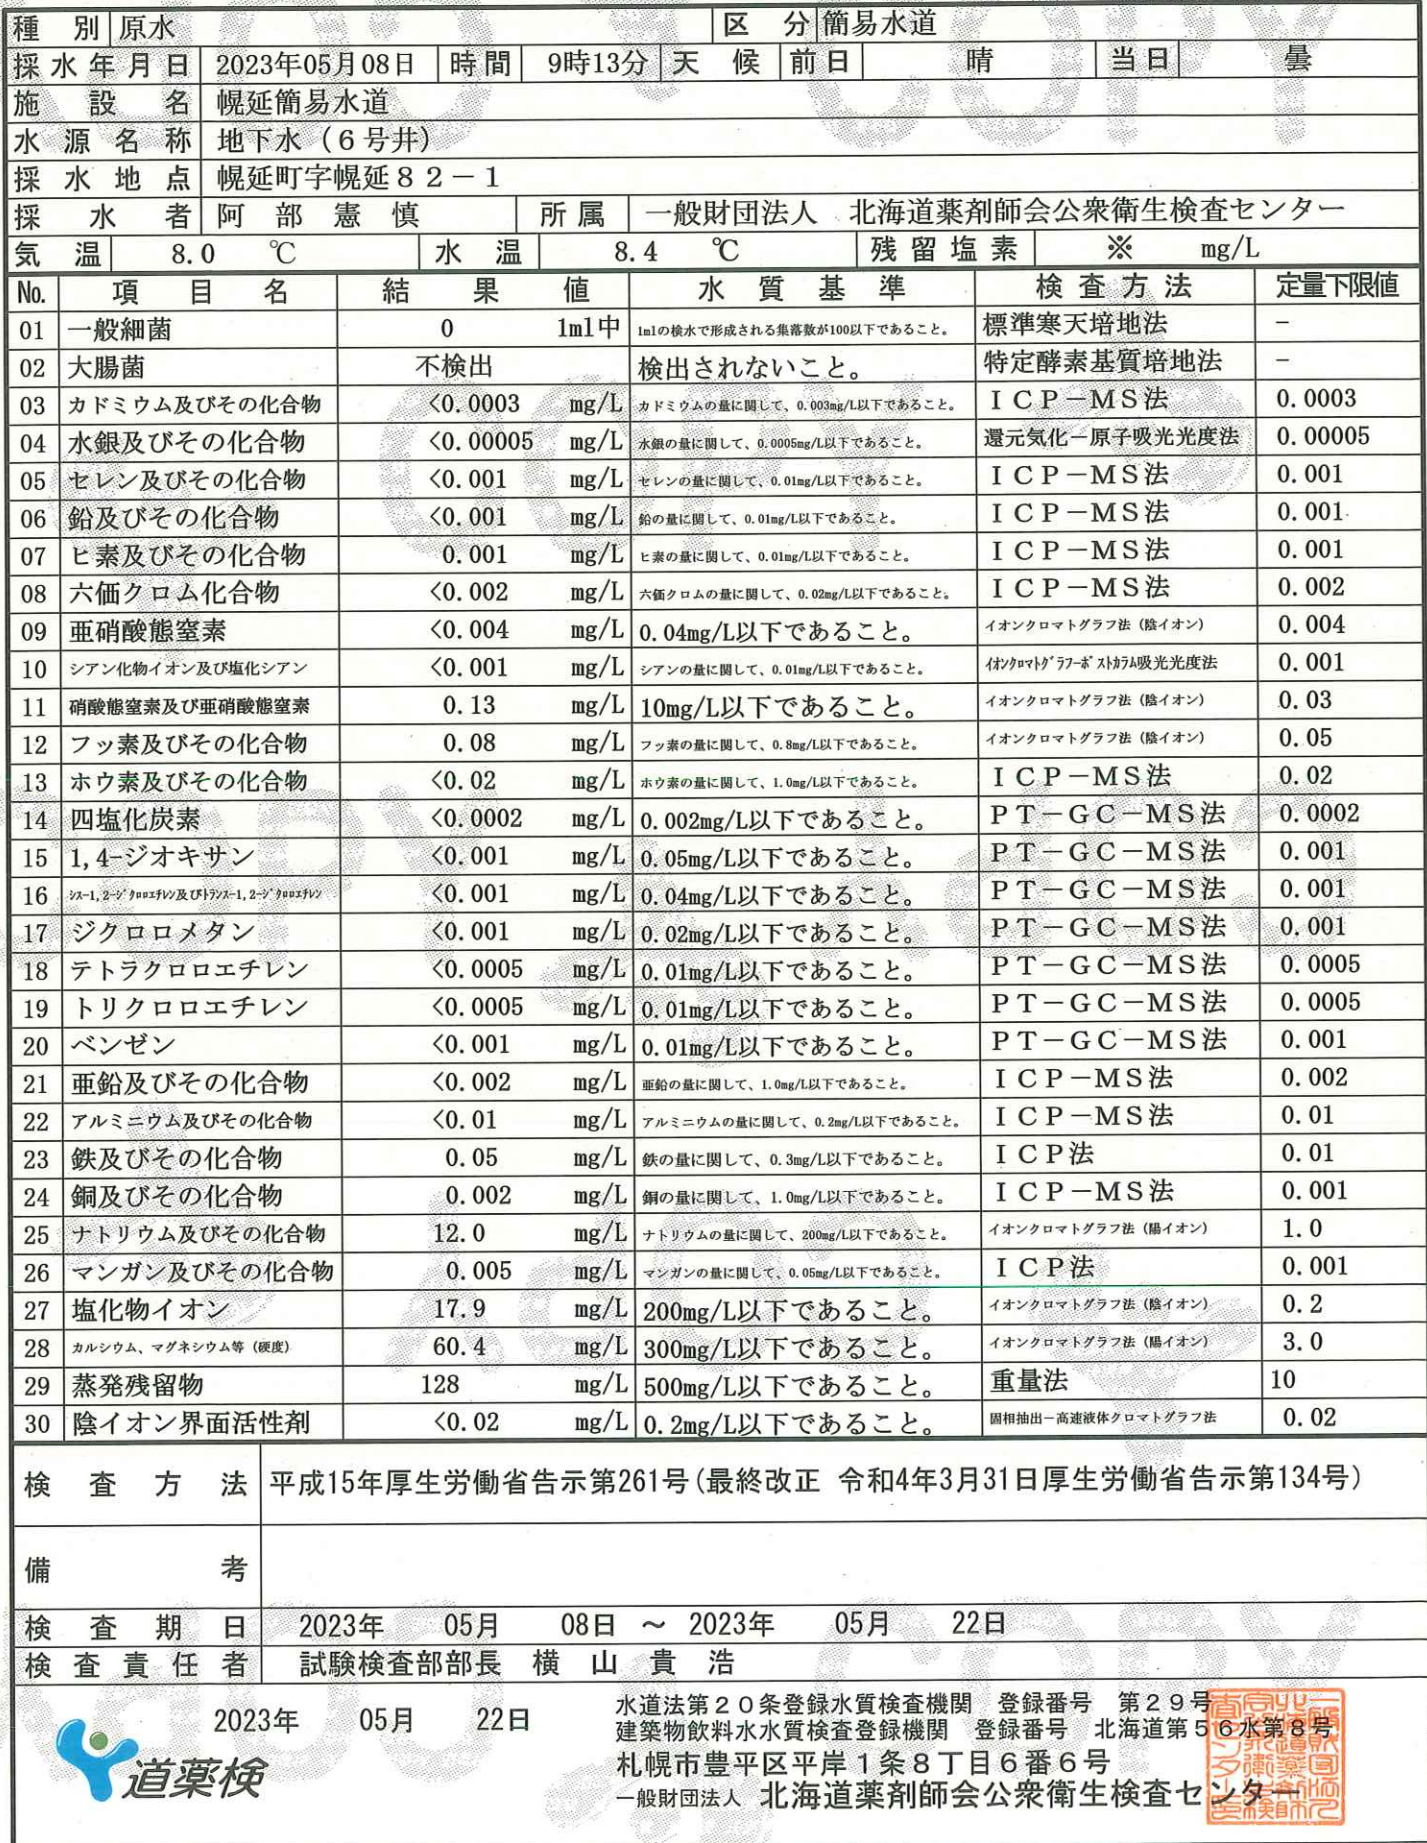 種別 原水 区分 簡易水道
採水年月日 2023年05月08日 時間 9時13分 天候 前日 晴 当日 曇
施設名 幌延簡易水道
水源名称 地下水（6号井）
採水地点 幌延町字幌延82－1
採水者 阿部憲慎 所属 一般財団法人 北海道薬剤師会公衆衛生検査センター
気温 8.0 ℃ 水温 8.4 ℃ 残留塩素 ※ mg/L
No. 項目名 結果値 水質基準 検査方法 定量下限値
01 一般細菌 0 1ml中 1mlの検水で形成される集落数が100以下であること。 標準寒天培地法 －
02 大腸菌 不検出 検出されないこと。 特定酵素基質培地法 －
03 カドミウム及びその化合物 <0.0003 mg/L カドミウムの量に関して、0.003mg/L以下であること。 ICP－MS法 0.0003
04 水銀及びその化合物 <0.00005 mg/L 水銀の量に関して、0.0005mg/L以下であること。 還元気化－原子吸光光度法 0.00005
05 セレン及びその化合物 <0.001 mg/L セレンの量に関して、0.01mg/L以下であること。 ICP－MS法 0.001
06 鉛及びその化合物 <0.001 mg/L 鉛の量に関して、0.01mg/L以下であること。 ICP－MS法 0.001
07 ヒ素及びその化合物 0.001 mg/L ヒ素の量に関して、0.01mg/L以下であること。 ICP－MS法 0.001
08 六価クロム化合物 <0.002 mg/L 六価クロムの量に関して、0.02mg/L以下であること。 ICP－MS法 0.002
09 亜硝酸態窒素 <0.004 mg/L 0.04mg/L以下であること。 イオンクロマトグラフ法（陰イオン） 0.004
10 シアン化物イオン及び塩化シアン <0.001 mg/L シアンの量に関して、0.01mg/L以下であること。 ｲｵﾝｸﾛﾏﾄｸﾞﾗﾌｰﾎﾟｽﾄｶﾗﾑ吸光光度法 0.001
11 硝酸態窒素及び亜硝酸態窒素 0.13 mg/L 10mg/L以下であること。 イオンクロマトグラフ法（陰イオン） 0.03
12 フッ素及びその化合物 0.08 mg/L フッ素の量に関して、0.8mg/L以下であること。 イオンクロマトグラフ法（陰イオン） 0.05
13 ホウ素及びその化合物 <0.02 mg/L ホウ素の量に関して、1.0mg/L以下であること。 ICP－MS法 0.02
14 四塩化炭素 <0.0002 mg/L 0.002mg/L以下であること。 PT－GC－MS法 0.0002
15 1,4-ジオキサン <0.001 mg/L 0.05mg/L以下であること。 PT－GC－MS法 0.001
16 ｼｽ-1,2-ｼﾞｸﾛﾛｴﾁﾚﾝ及びﾄﾗﾝｽ-1,2-ｼﾞｸﾛﾛｴﾁﾚﾝ <0.001 mg/L 0.04mg/L以下であること。 PT－GC－MS法 0.001
17 ジクロロメタン <0.001 mg/L 0.02mg/L以下であること。 PT－GC－MS法 0.001
18 テトラクロロエチレン <0.0005 mg/L 0.01mg/L以下であること。 PT－GC－MS法 0.0005
19 トリクロロエチレン <0.0005 mg/L 0.01mg/L以下であること。 PT－GC－MS法 0.0005
20 ベンゼン <0.001 mg/L 0.01mg/L以下であること。 PT－GC－MS法 0.001
21 亜鉛及びその化合物 <0.002 mg/L 亜鉛の量に関して、1.0mg/L以下であること。 ICP－MS法 0.002
22 アルミニウム及びその化合物 <0.01 mg/L アルミニウムの量に関して、0.2mg/L以下であること。 ICP－MS法 0.01
23 鉄及びその化合物 0.05 mg/L 鉄の量に関して、0.3mg/L以下であること。 ICP法 0.01
24 銅及びその化合物 0.002 mg/L 銅の量に関して、1.0mg/L以下であること。 ICP－MS法 0.001
25 ナトリウム及びその化合物 12.0 mg/L ナトリウムの量に関して、200mg/L以下であること。 イオンクロマトグラフ法（陽イオン） 1.0
26 マンガン及びその化合物 0.005 mg/L マンガンの量に関して、0.05mg/L以下であること。 ICP法 0.001
27 塩化物イオン 17.9 mg/L 200mg/L以下であること。 イオンクロマトグラフ法（陰イオン） 0.2
28 カルシウム、マグネシウム等（硬度） 60.4 mg/L 300mg/L以下であること。 イオンクロマトグラフ法（陽イオン） 3.0
29 蒸発残留物 128 mg/L 500mg/L以下であること。 重量法 10
30 陰イオン界面活性剤 <0.02 mg/L 0.2mg/L以下であること。 固相抽出－高速液体クロマトグラフ法 0.02
検査方法 平成15年厚生労働省告示第261号(最終改正 令和4年3月31日厚生労働省告示第134号)
備考
検査期日 2023年 05月 08日 ～ 2023年 05月 22日
検査責任者 試験検査部部長 横山貴浩
2023年 05月 22日
水道法第20条登録水質検査機関 登録番号 第29号
建築物飲料水水質検査登録機関 登録番号 北海道第56水第8号
札幌市豊平区平岸1条8丁目6番6号
一般財団法人 北海道薬剤師会公衆衛生検査センター
道薬検
COPY